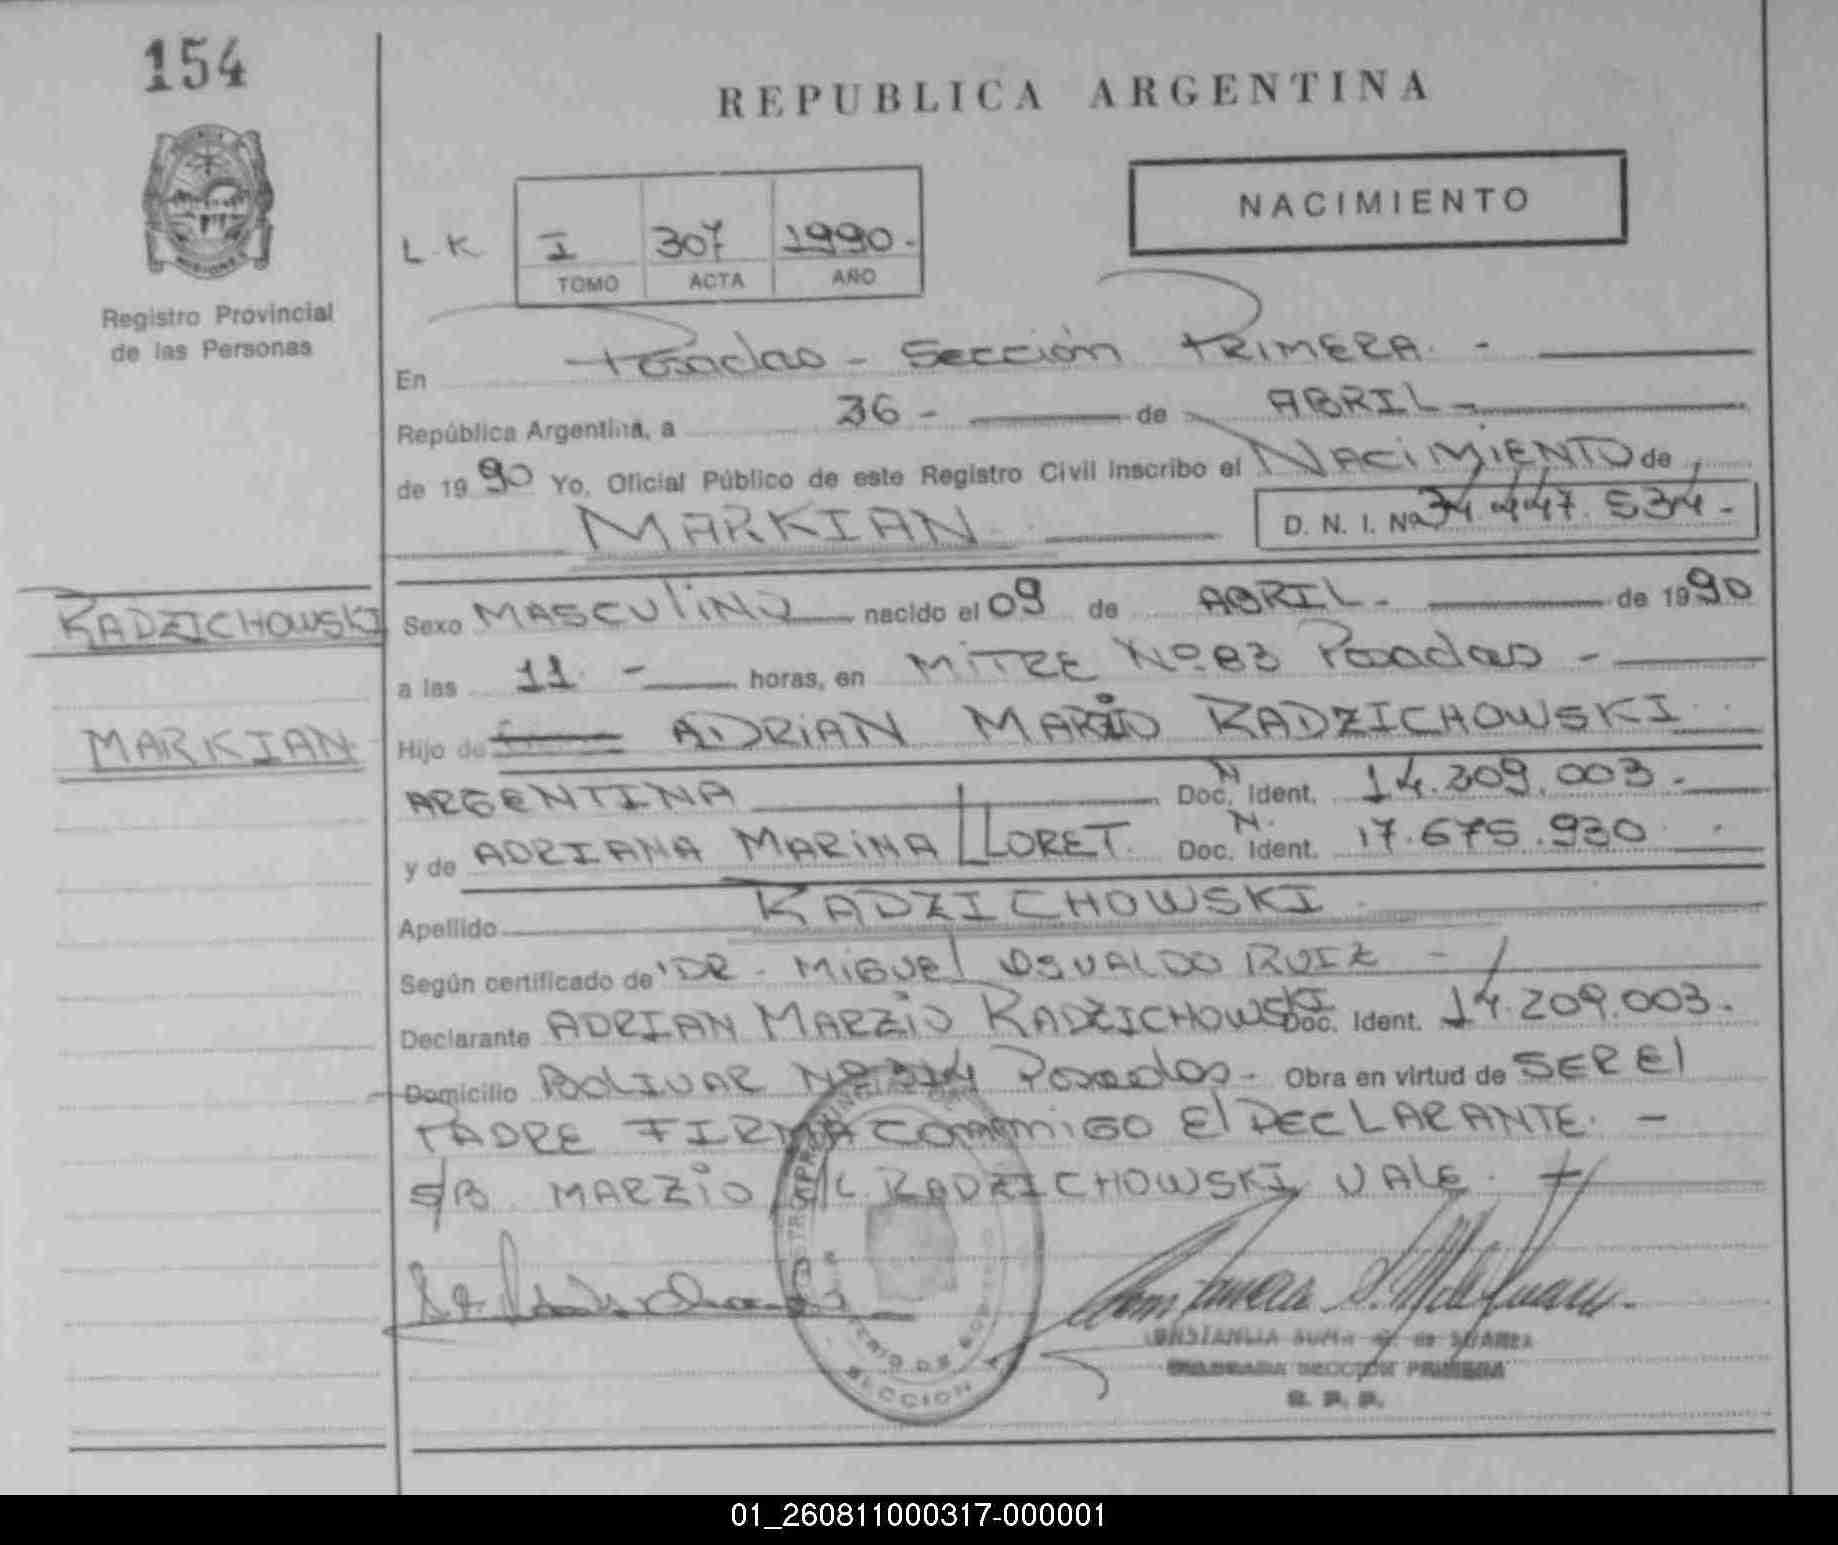 154
REPUBLICA ARGENTINA
NACIMIENTO
L.K. I 307 1990.-
TOMO ACTA AÑO
MISIONES
Registro Provincial
de las Personas
En Posadas - Sección PRIMERA. -
República Argentina, a 26 - de ABRIL -
de 1990 Yo, Oficial Público de este Registro Civil inscribo el NACIMIENTO de
MARKIAN D. N. I. Nº 34.447.534.-
RADZICHOWSKI
Sexo MASCULINO nacido el 09 de ABRIL - de 1990
a las 11. - horas, en MITRE Nº 83 Posadas -
MARKIAN
Hijo de ADRIAN MARZIO RADZICHOWSKI
ARGENTINA Doc. N Ident. 14.209.003.-
y de ADRIANA MARINA LLORET. Doc. N. Ident. 17.675.930
Apellido RADZICHOWSKI
Según certificado de DR. MIGUEl OSVALDO RUIZ -
Declarante ADRIAN MARZIO RADZICHOWSKI Doc. Ident. 14.209.003.
Domicilio BOLIVAR Nº 314 Posadas - Obra en virtud de SER El
PADRE FIRMA CONMIGO El DECLARANTE. -
S/B MARZIO E/L RADZICHOWSKI VALE.
SECCION
SECCION PRIMERA
R. P. P.
01_260811000317-000001